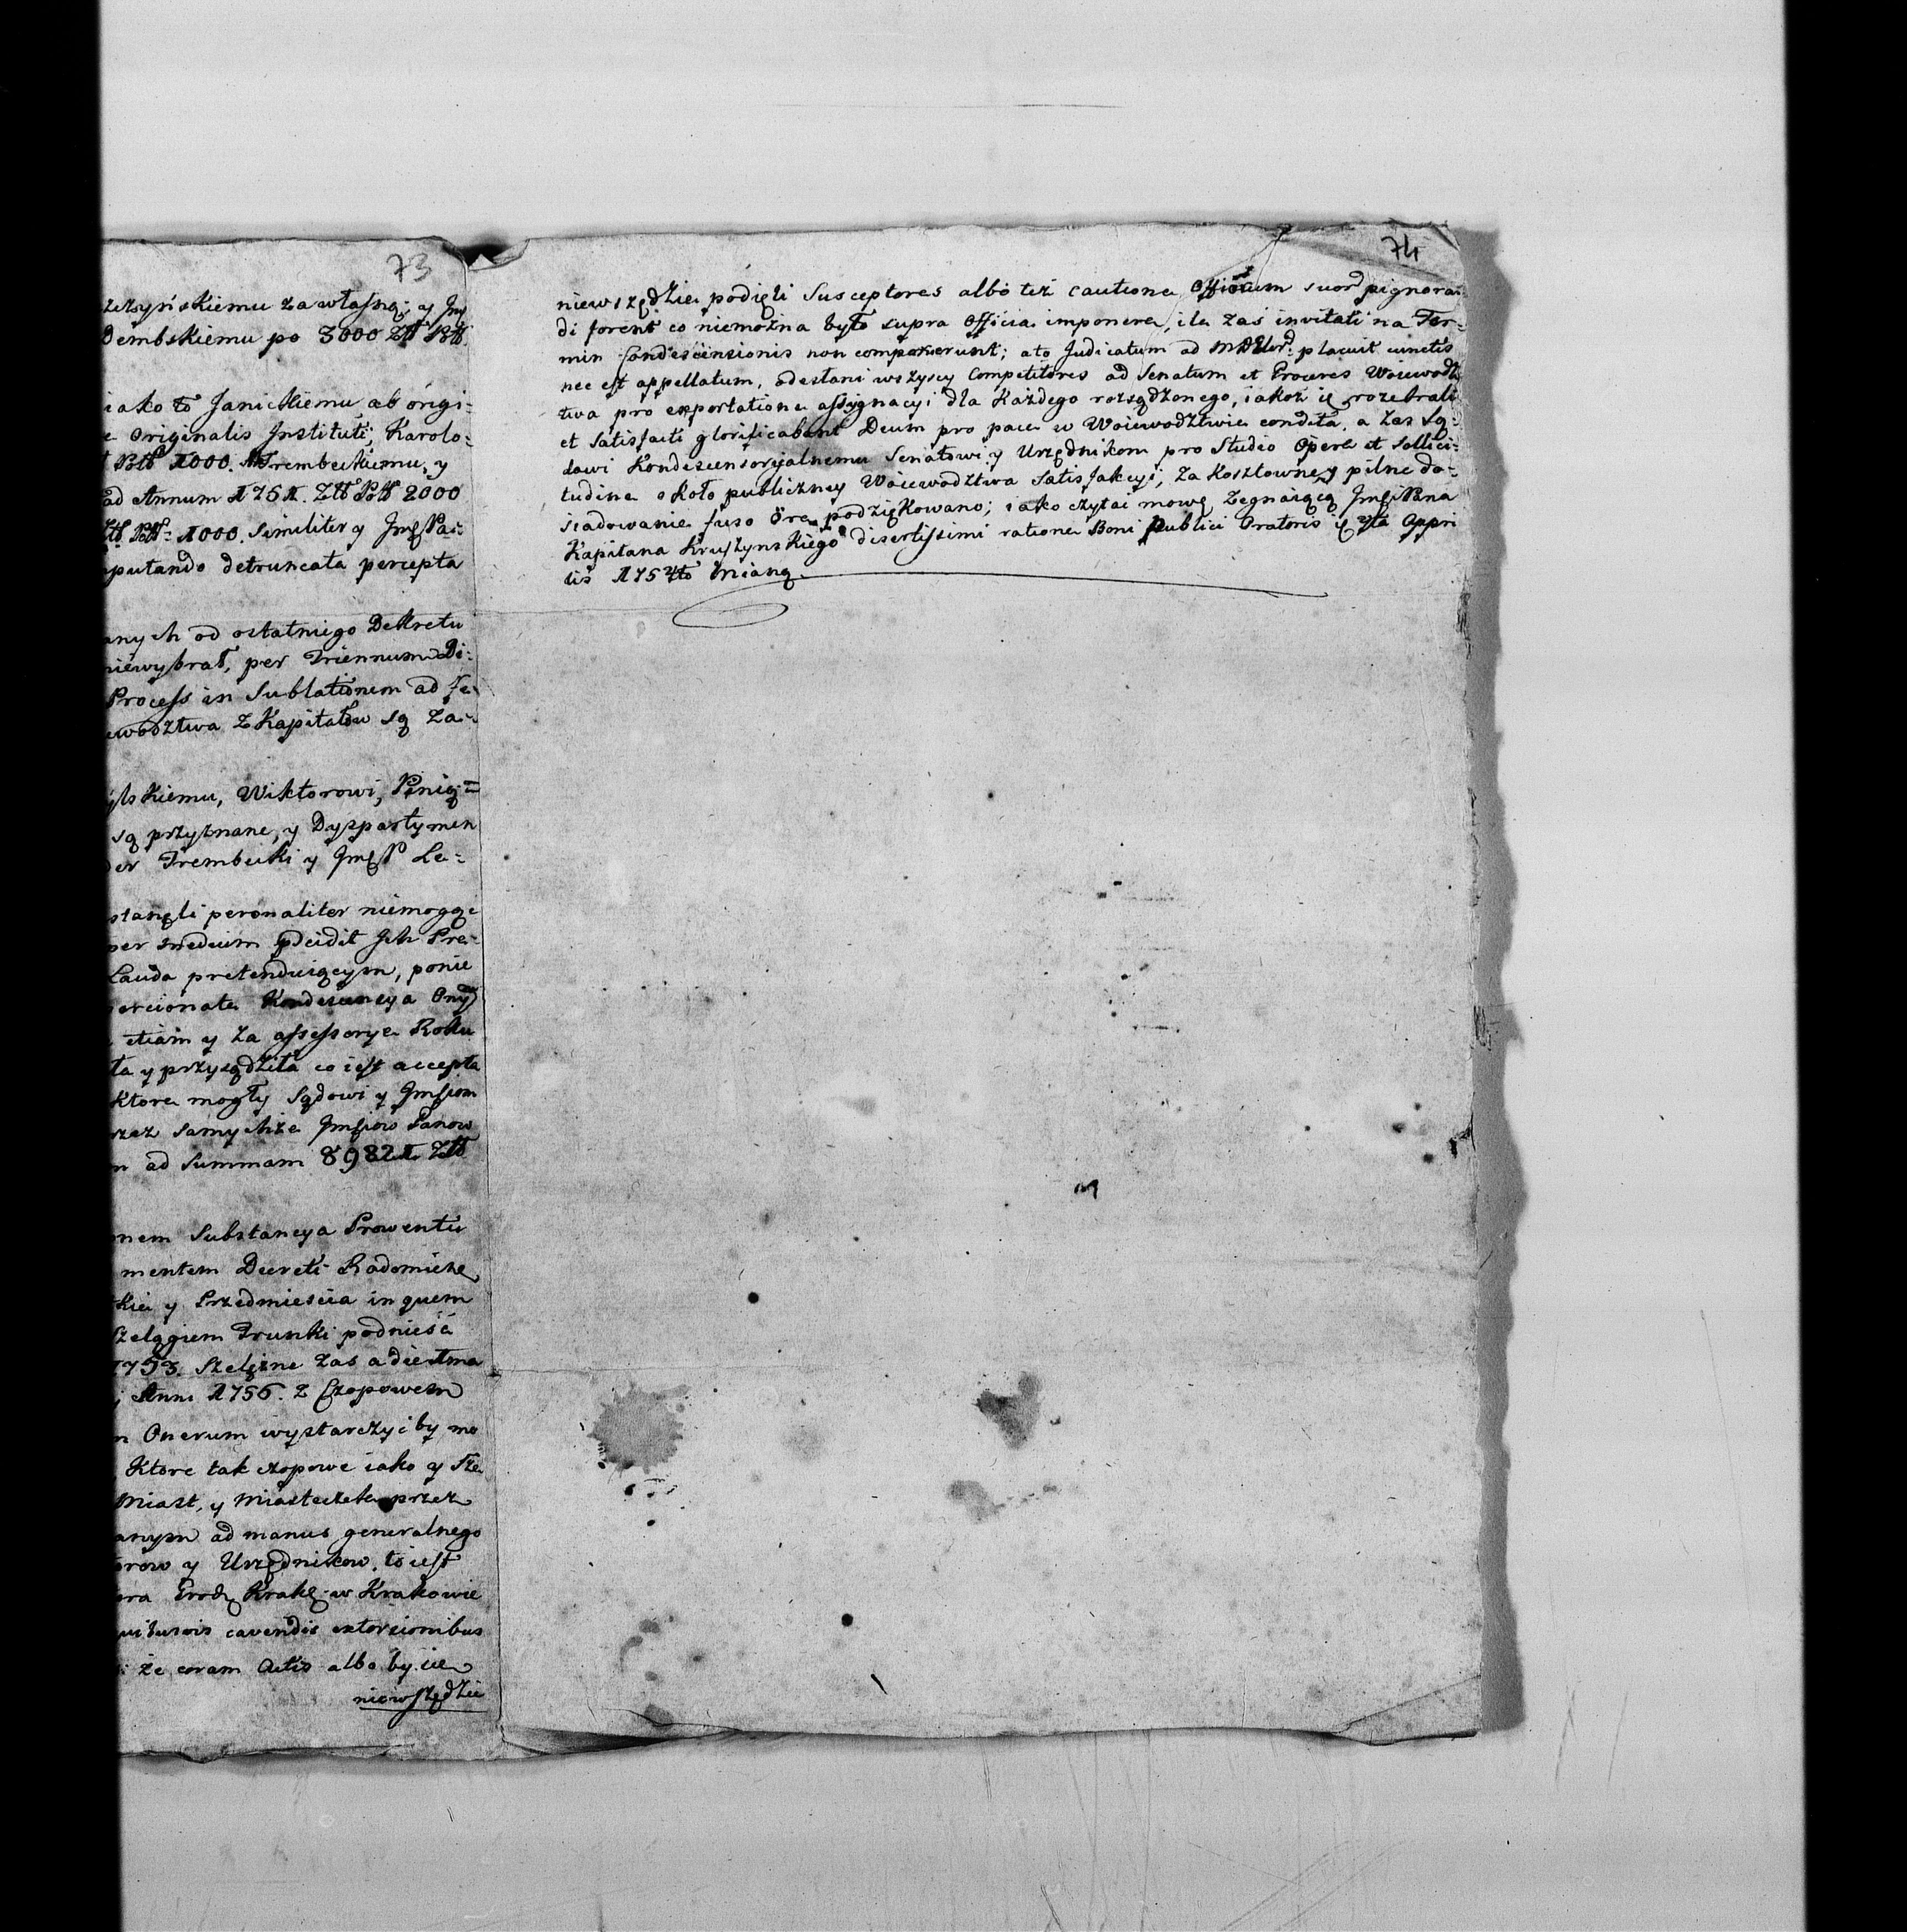 73
zeżyńskiemu za własną; y Jmę
Dembskiemu po 3000 Złł Poll.
iako to Janickiemu ab origi-
e Originalis Instituti, Karolo-
Poll 1000. Trembeckiemu, y
ad Annum 1751. Złł Poll 2000
Złł Poll 1000. Similiter y JmęPa-
mputando detruncata percepta
anych od ostatniego Dekretu
niewybrał, per Triennum Di-
Process in Sublationem ad Fe
ewodztwa z Kapitałów są za-
skiemu, Wiktorowi, Penią-
są przyznane, y Dyspartymen
der Trembecki y JmęP Le-
stanęli peronaliter niemogąc
per medium Jch Pre-
Lauda pretenduiącym, ponie
porcionate Kondescencya
etiam y za assessorye Roku
ła y przysądziła co iest accepta
Ktore mogły Sądowi y Jmściom
rzez samychże Jmściow Panow
m ad Summam 8982 Złł
nem Substancya Prowentu
mentem Decreti Radomiens
kiei y Przedmiescia in quem
Szelągiem Trunki podnieść
1753. Szelężne zas a die 1ma
Anni 1756. z Czopowem
m Onerum wystarczyć by mo
Ktore tak czopowe iako y Sze
Miast, y Miasteczek przez
anym ad manus generalnego
orow y Urzędnikow, to iest
pra Grodz Krakę w Krakowie
cavendis extorsionibus
że coram Actis albo by sie
niewszędzie
74
niewszędzie podięli Susceptores albo też cautione Officium suor pignoran-
di forent co niemożna było supra Officia imponere, ile zas invitati na Ter-
min Condescensionis non comparuerunt; a to Judicatum ad placuit cunctis
nec est appellatum, odesłani wszyscy Competitores ad Senatum et Proceres Woiewodz
twa pro exportatione assygnacyi dla Każdego rozsądzonego, iakoż ię rozebrali
et satisfacti glorificabant Deum pro pace w Woiewodztwie condita, a zas Są-
dowi Kondescensoryalnemu Senatowi y Urzędnikom pro Studio Opere et Sollici-
tudine około publiczney Woiewodztwa Satisfakcyi, za kosztowne y pilne do-
siadowanie fuso Ore podziękowano; iako czytai mowę Zegnaiącą Jmści Pana
Kapitana Kruszynskiego disertissimi ratione Boni Publici Oratoris ię 7ta Appri
lis 1754to mianą.